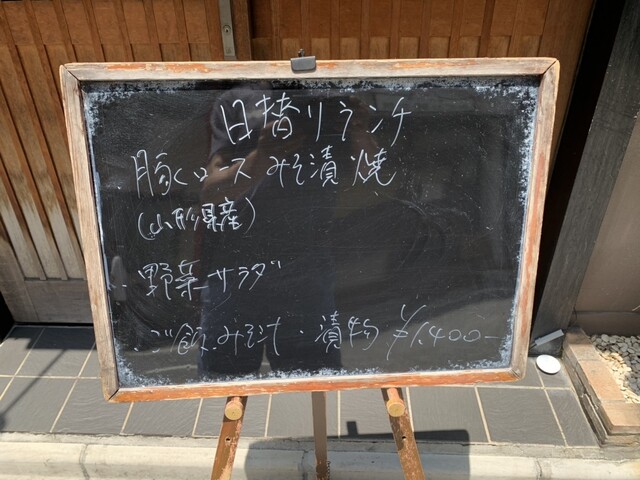 日替りランチ
・豚ロース みそ漬焼
(山形県産)
・野菜サラダ
・ご飯.みそ汁・漬物 ¥1,400-